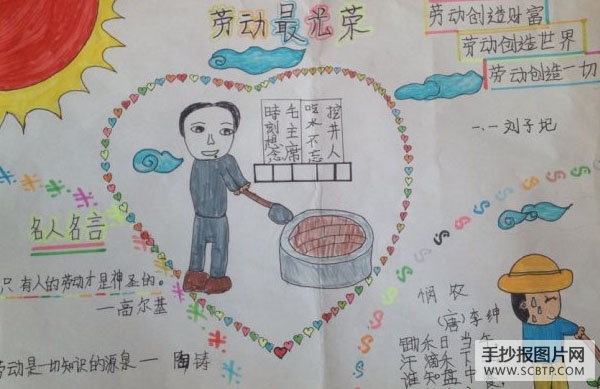 劳动最光荣
劳动创造财富
劳动创造世界
劳动创造一切
一.一刘子
挖井人
吃水不忘
毛主席
時刻想念
名人名言
只有人的劳动才是神圣的。
—高尔基
劳动是一切知识的源泉— 陶铸
悯农
(唐)李绅
锄禾日当午
汗滴禾下
谁知盘中
手抄报图片网
WWW.SCBTP.COM